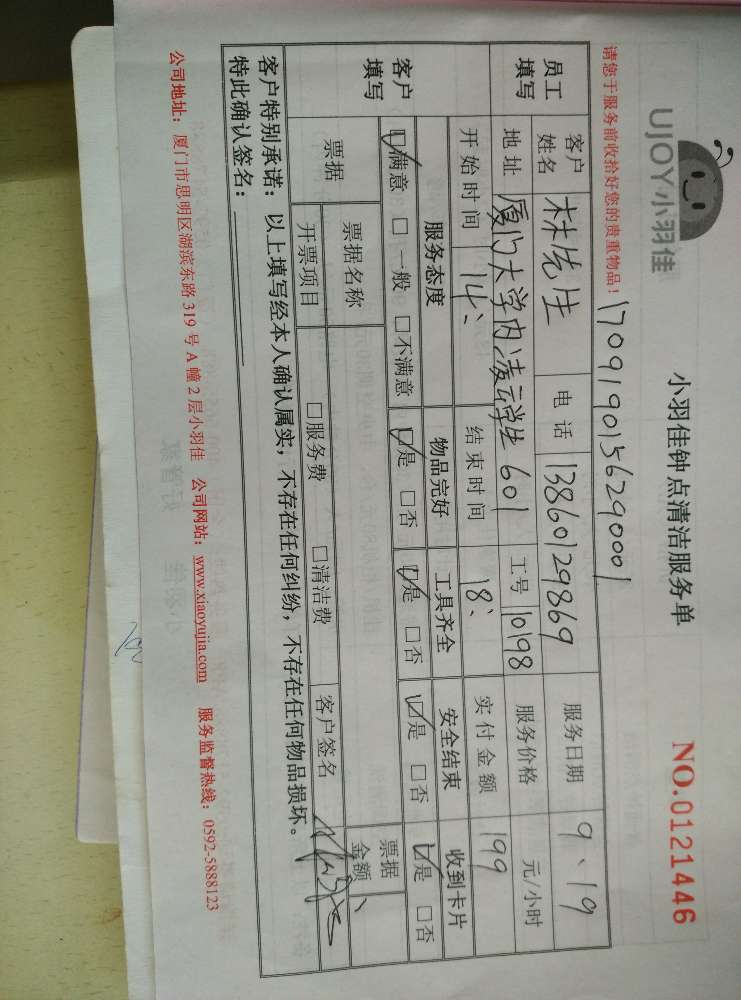 UJOY小羽佳
小羽佳钟点清洁服务单
NO.0121446
请您于服务前收拾好您的贵重物品!
1709190156290001
员工填写
客户姓名 林先生 电话 13860129869 服务日期 9、19
地址 厦门大学内凌云学生601 工号 10198 服务价格 元/小时
开始时间 14、 结束时间 18、 实付金额 199
客户填写
服务态度 物品完好 工具齐全 安全结束 收到卡片
☑满意 □一般 □不满意 ☑是 □否 ☑是 □否 ☑是 □否 ☑是 □否
票据 票据名称 票据金额
开票项目 □服务费 □清洁费 客户签名
客户特别承诺:以上填写经本人确认属实,不存在任何纠纷,不存在任何物品损坏。
特此确认签名:
公司地址:厦门市思明区湖滨东路 319 号 A 幢 2 层小羽佳 公司网站:www.xiaoyujia.com 服务监督热线:0592-5888123